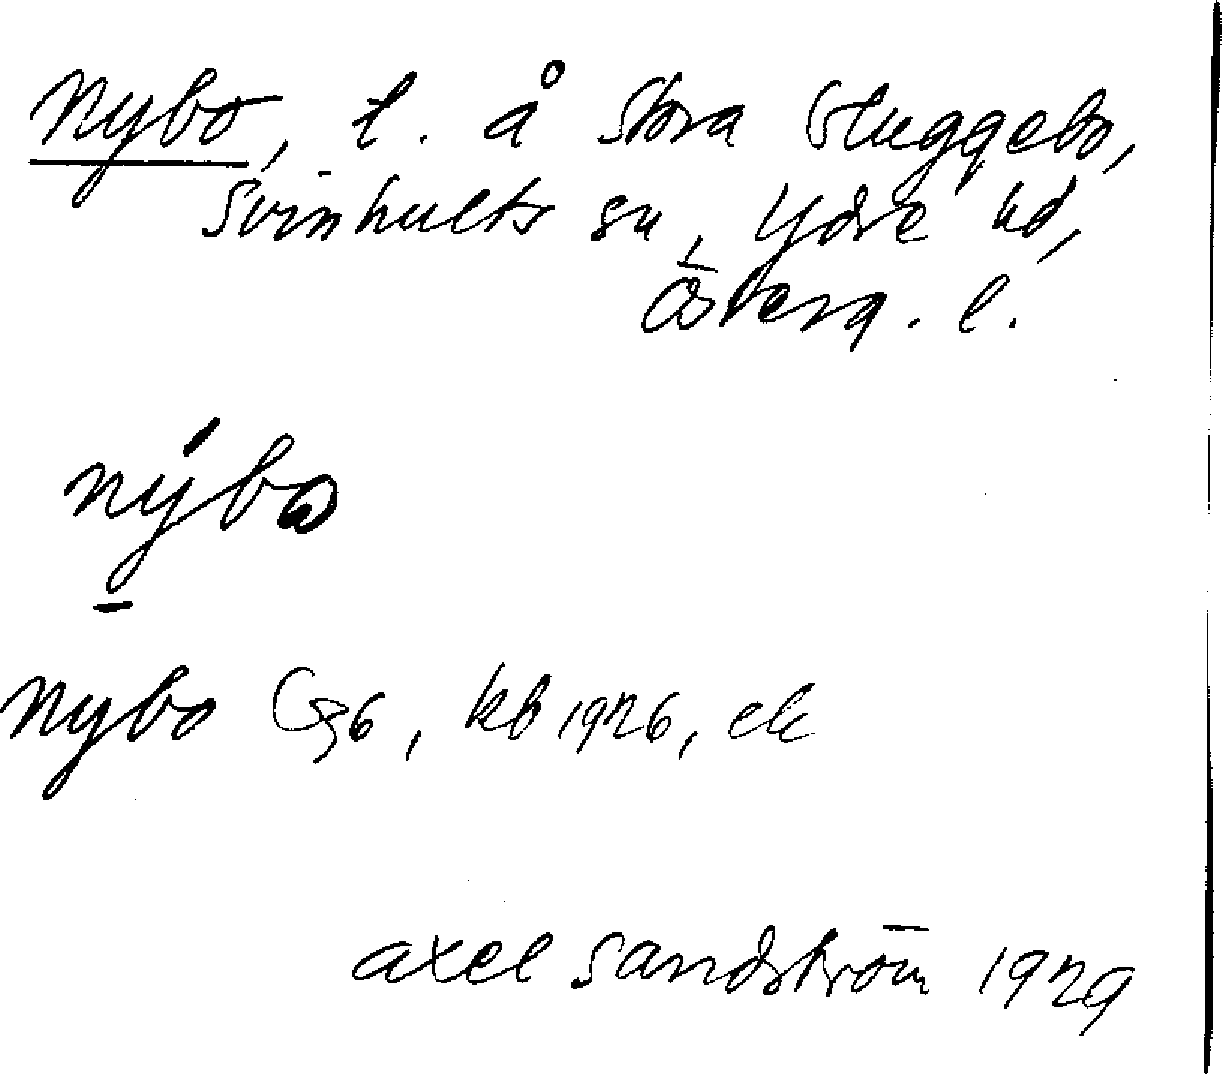 Nybo, t. å Stora Stuggebo,
Svinhults sn, Ydre hd,
Österg. l.
nýbo
Nybo G36, kb 1926, ek
Axel Sandström 1929